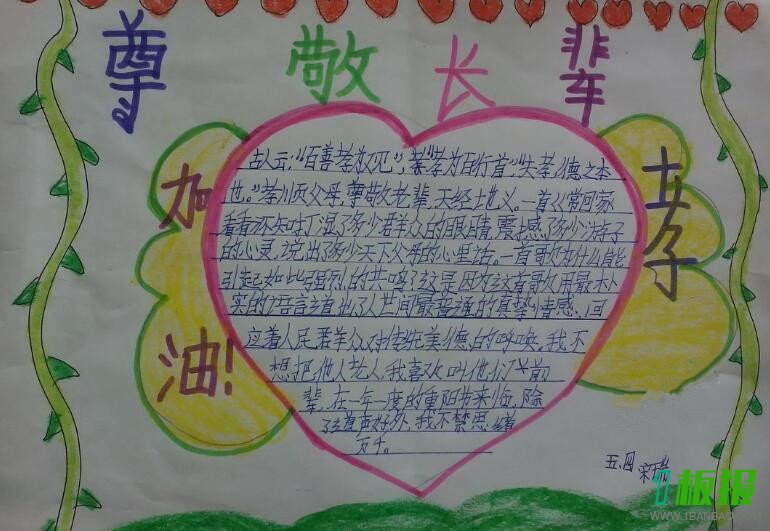 尊敬长辈
加油!
孝
古人云:“百善孝为先”,“孝为百行首”,“夫孝,德之本
也。”孝川页父母,尊敬老辈,天经地义。一首《常回家
看看不知打湿了多少君羊众的眼睛,震撼了多少游子
的心灵,说出了多少天下父母的心里话。一首歌为什么能
引起如此强烈的共鸣?这是因为这首歌用最朴
实的语言道出了人世间最普通的真挚情感,回
应着人民君羊众对传统美德的呼唤。我不
想把他人老人,我喜欢叫他们“前
辈,在一年一度的重阳节来临,除
了道声好外,我不禁思绪
万千。
五.四
1板报
WWW.1BANBAO.COM